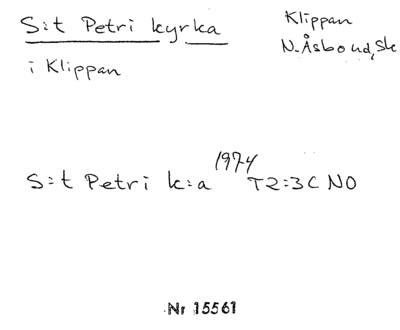 S:t Petri kyrka
i Klippan
Klippan
N. Åsbo hd, Sk
1974
S:t Petri k:a T2:3C NO
Nr 15561